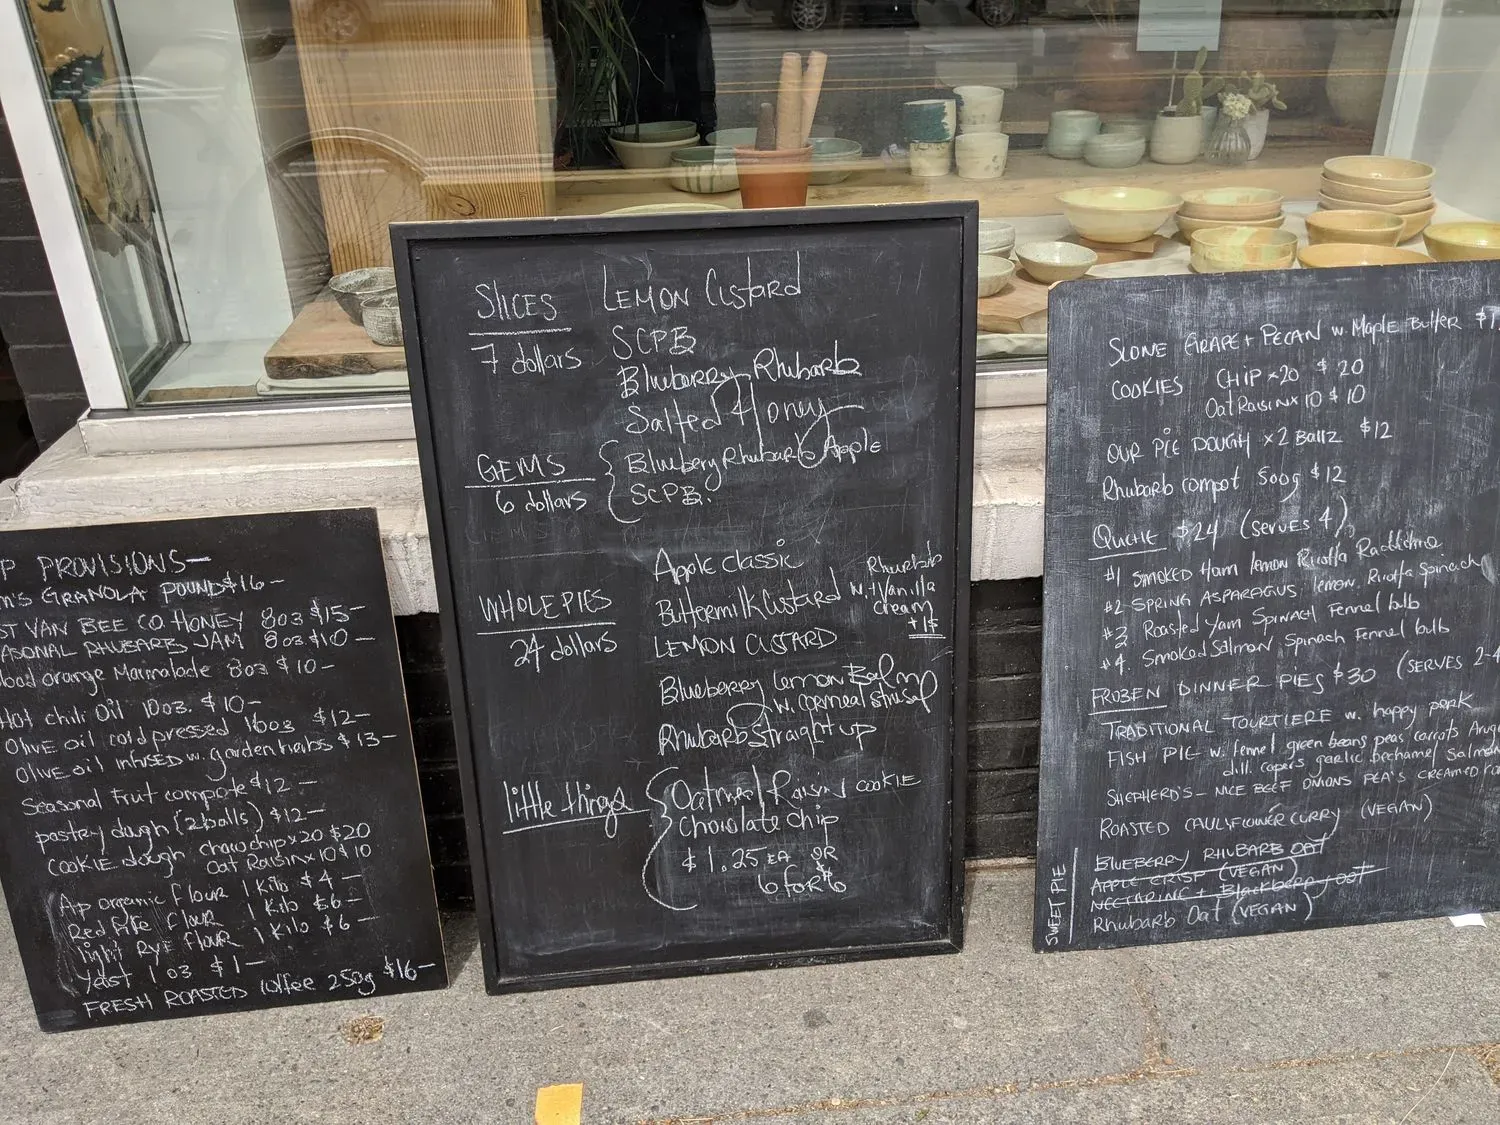 P PROVISIONS—
M'S GRANOLA POUND $16—
ST VAN BEE CO. HONEY 8oz $15—
ASONAL RHUBARB JAM 8oz $10—
lood orange Marmalade 8oz $10—
Hot chili Oil 10oz. $10—
Olive oil cold pressed 16oz $12—
Olive oil infused w. garden herbs $13—
Seasonal Fruit compote $12—
pastry dough (2balls) $12—
COOKIE dough chocchip x20 $20
Oat Raisin x 10 $10
Ap organic Flour 1 Kilo $4—
Red Fife Flour 1 Kilo $6—
light Rye Flour 1 Kilo $6—
Yeast 1 oz $1—
FRESH ROASTED Coffee 250g $16—
SLICES
7 dollars
LEMON Custard
SCPB
Blueberry Rhubarb
Salted Honey
GEMS
6 dollars
Bluebery Rhubarb Apple
SCPB.
WHOLE PIES
24 dollars
Apple classic
Buttermilk Custard w. Rhubarb + Vanilla cream +1$
LEMON CUSTARD
Blueberry lemon Balm
w. cornmeal
Rhubarb Straight up
little things
Oatmeal Raisin COOKIE
Chocolate chip
$1.25 EA OR
6 for $6
SCONE GRAPE + PECAN w Maple Butter $
COOKIES CHIP x20 $20
Oat Raisin x 10 $10
OUR PIE DOUGH x 2 Ballz $12
Rhubarb compot 500g $12
QUICHE $24 (SERVES 4)
#1 SMOKED Ham lemon Ricotta Radicchio
#2 SPRING ASPARAGUS lemon Ricotta Spinach
#3 Roasted Yam Spinach Fennel bulb
#4. Smoked Salmon Spinach Fennel bulb
FROZEN DINNER PIES $30 (SERVES 2-4
TRADITIONAL TOURTIERE w. happy pork
FISH PIE w. fennel green beans peas carrots Arug
dill capers garlic bechamel Salmon
SHEPHERD'S — NICE BEEF ONIONS PEA'S CREAMED
ROASTED CAULIFLOWER CURRY (VEGAN)
SWEET PIE
BLUEBERRY RHUBARB OAT
APPLE CRISP (VEGAN)
NECTARINE + Blackberry OAT
Rhubarb Oat (VEGAN)